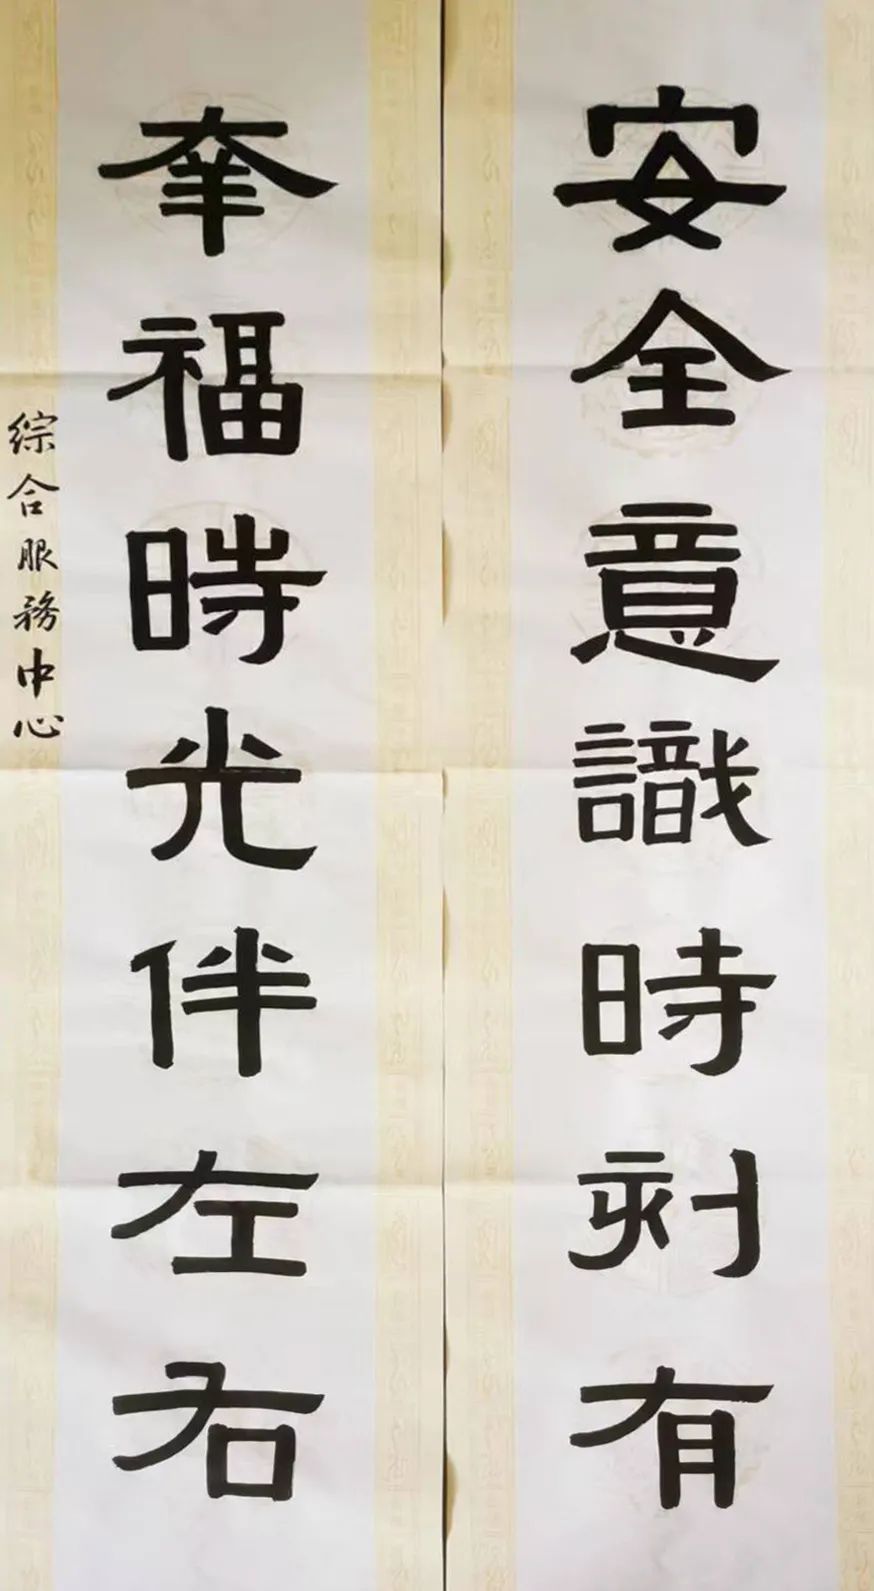 安全意識時刻有
幸福時光伴左右
綜合服務中心